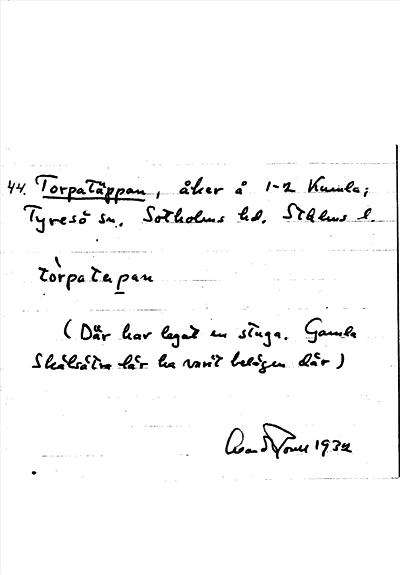 44. Torpatäppan, åker å 1-2 Kumla;
Tyresö sn. Sotholms hd. Sthlms l.
tòrpatepan
(Där har legat en stuga. Gamla
Skälsätra lär ha varit belägen där)
1932